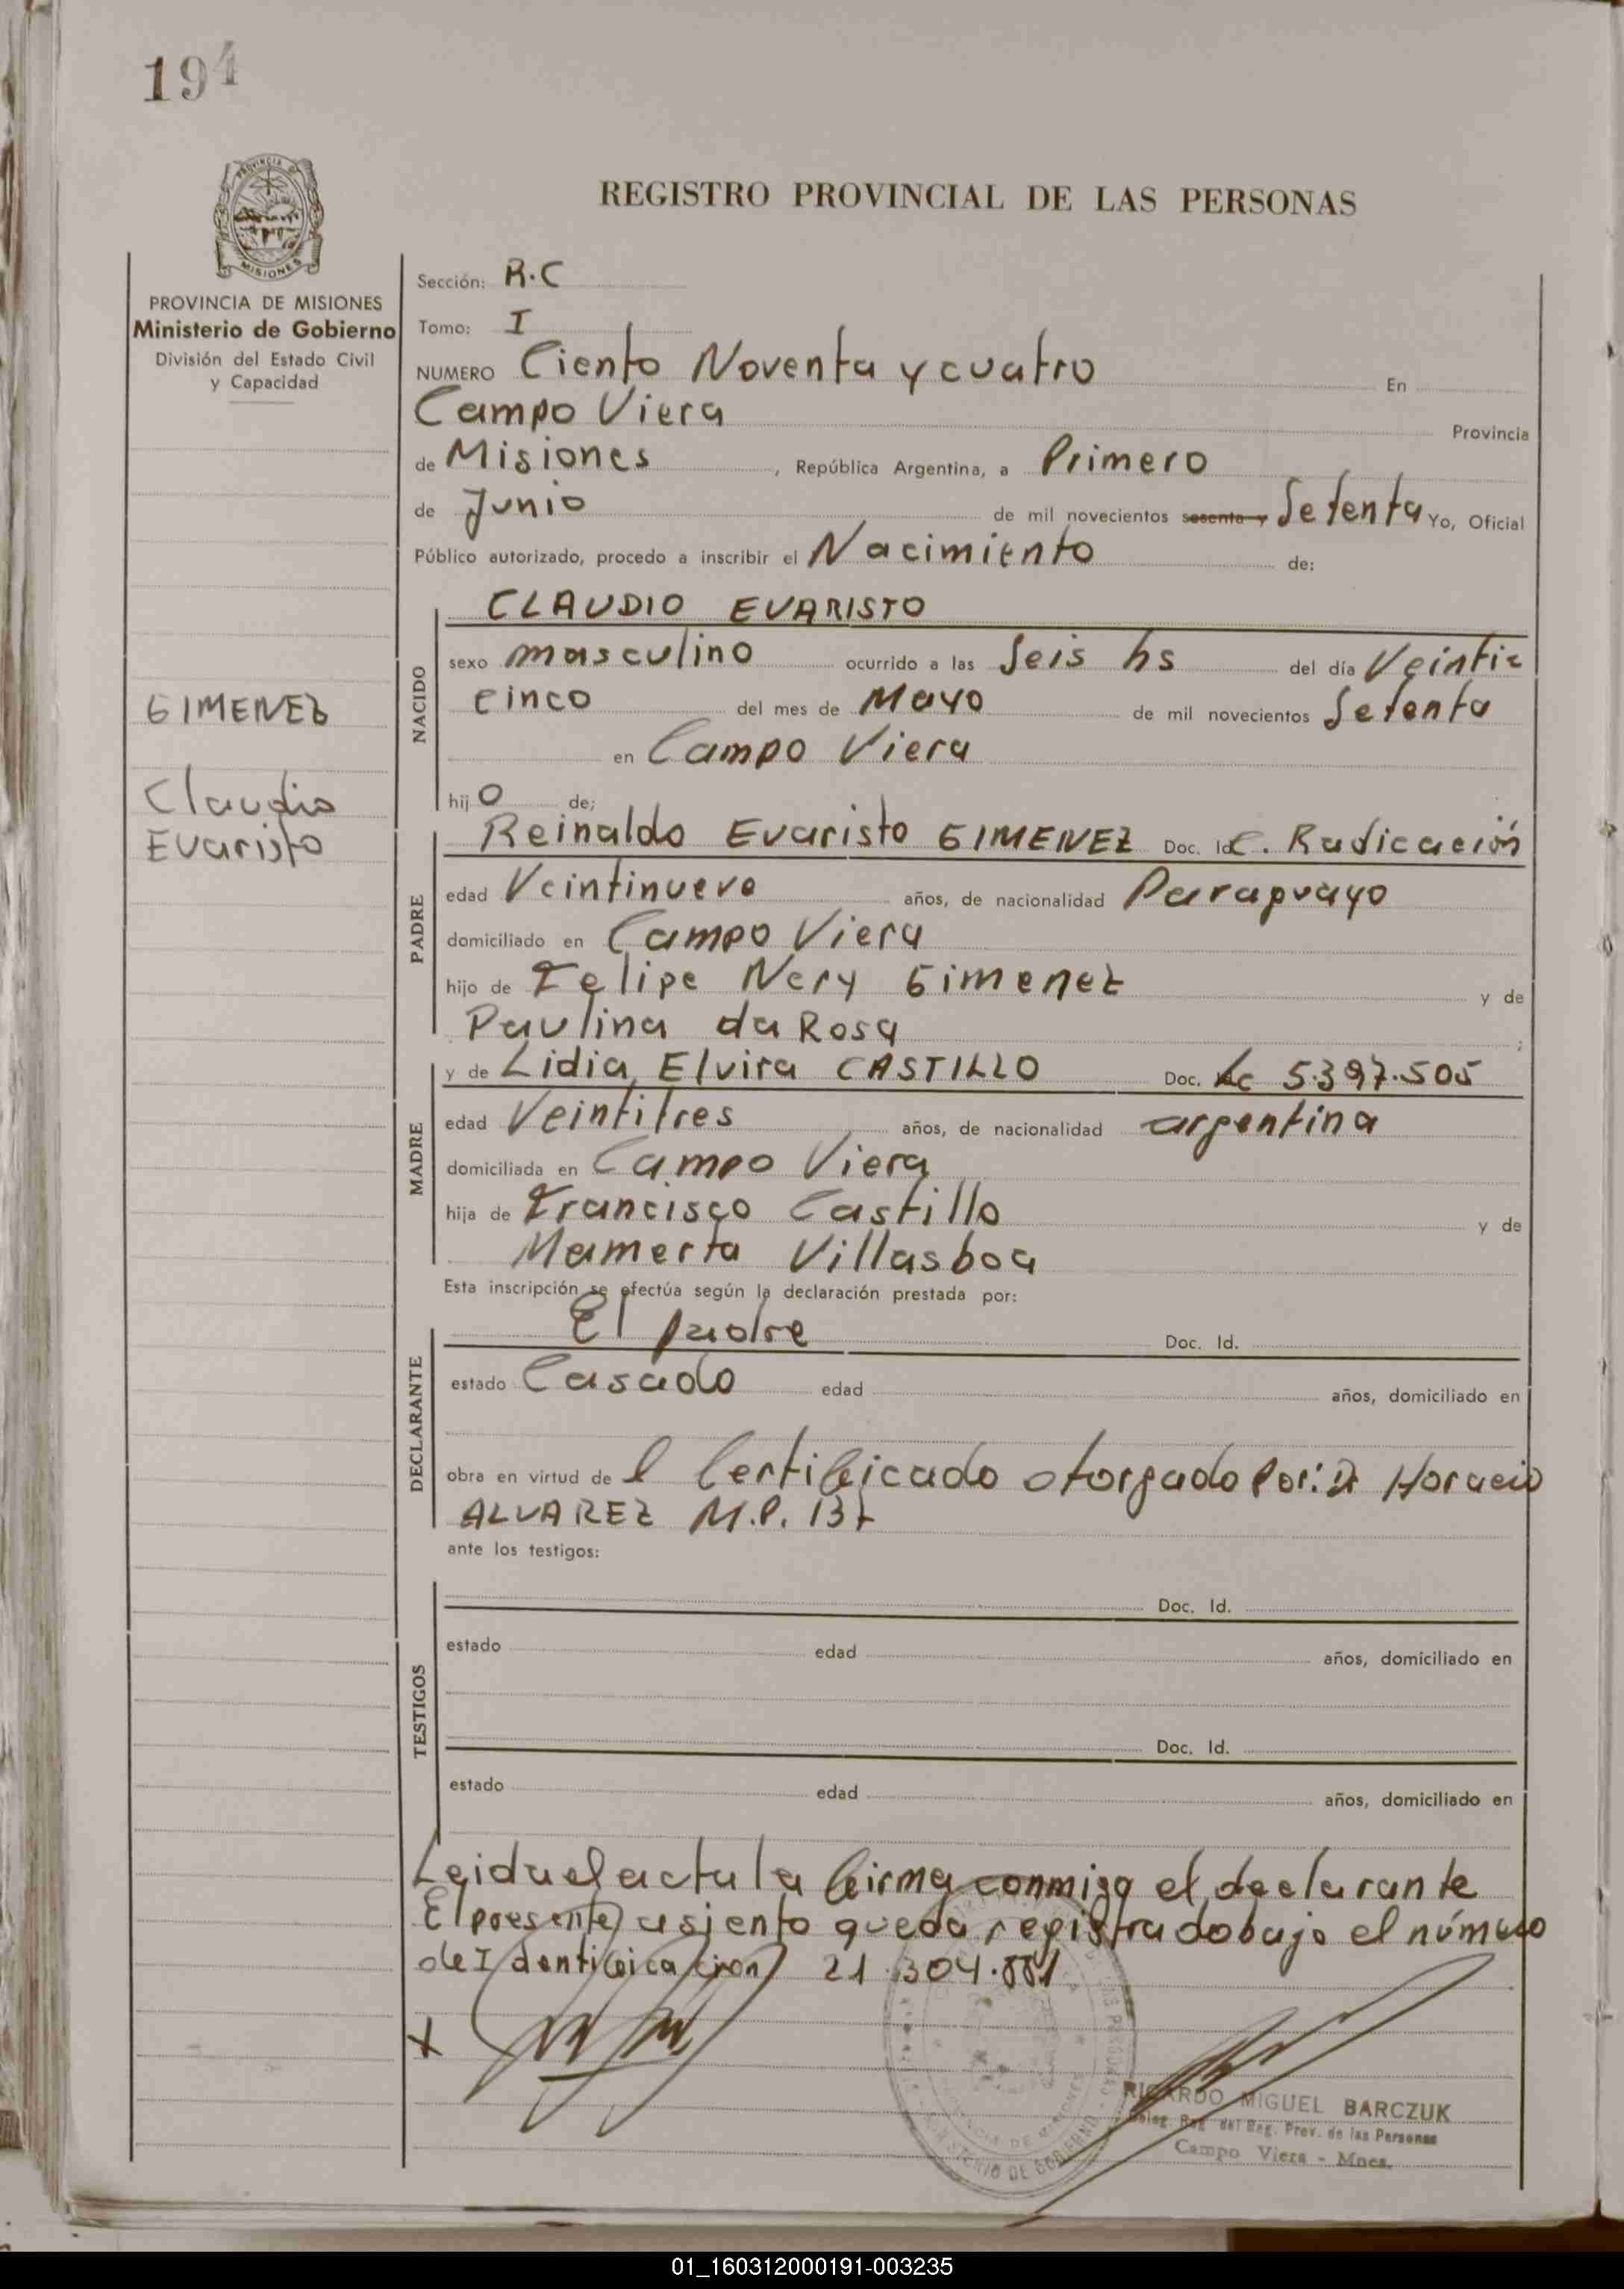 194
PROVINCIA DE
MISIONES
REGISTRO PROVINCIAL DE LAS PERSONAS
PROVINCIA DE MISIONES
Ministerio de Gobierno
División del Estado Civil
y Capacidad
GIMENEZ
Claudio
Evaristo
Sección: R.C
Tomo: I
NUMERO Ciento Noventa y cuatro En
Campo Viera Provincia
de Misiones, República Argentina, a Primero
de Junio de mil novecientos sesenta y Setenta Yo, Oficial
Público autorizado, procedo a inscribir el Nacimiento de:
NACIDO
CLAUDIO EVARISTO
sexo masculino ocurrido a las Seis hs del día Veinti
cinco del mes de Mayo de mil novecientos Setenta
en Campo Viera
hijo de;
PADRE
Reinaldo Evaristo GIMENEZ Doc. Id C. Radicación
edad Veintinueve años, de nacionalidad Paraguayo
domiciliado en Campo Viera
hijo de Felipe Nery Gimenez y de
Paulina da Rosa ;
MADRE
y de Lidia Elvira CASTILLO Doc. Lc 5.397.505
edad Veintitres años, de nacionalidad argentina
domiciliada en Campo Viera
hija de Francisco Castillo y de
Mamerta Villasboa
Esta inscripción se efectúa según la declaración prestada por:
DECLARANTE
El padre Doc. Id.
estado Casado edad años, domiciliado en
obra en virtud del Certificado otorgado Por: Dr Horacio
ALVAREZ M.P. 137
ante los testigos:
TESTIGOS
Doc. Id.
estado edad años, domiciliado en
Doc. Id.
estado edad años, domiciliado en
Leida el acta la firma conmigo el declarante
El presente asiento queda registrado bajo el número
de Identificacion 21.304.881
RICARDO MIGUEL BARCZUK
Deleg. Reg. del Reg. Prov. de las Personas
Campo Viera - Mnes.
MINISTERIO DE GOBIERNO
01_160312000191-003235